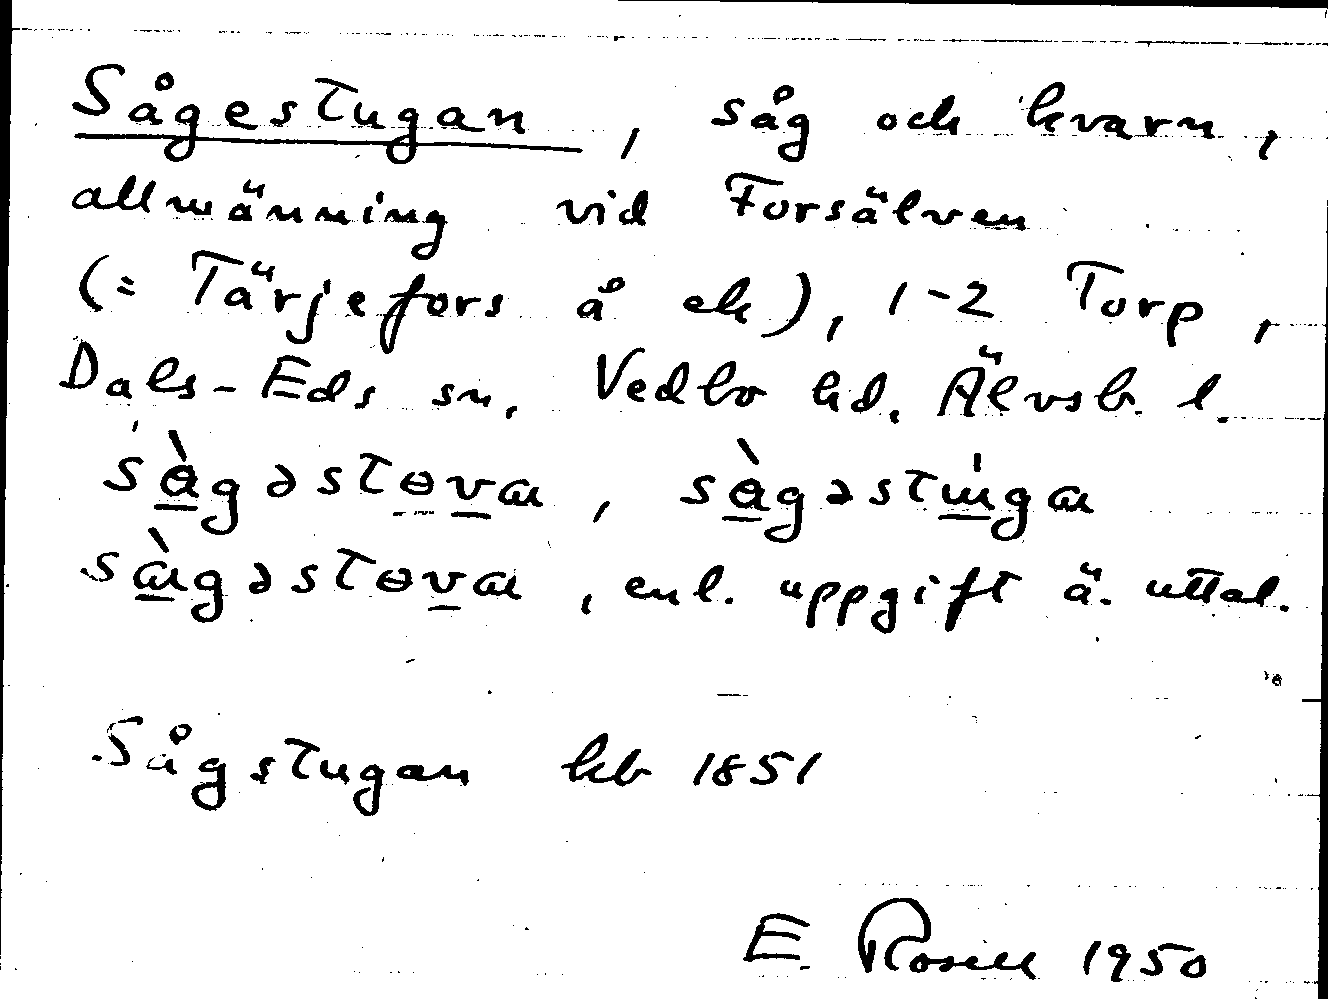 Sågestugan, såg och kvarn,
allmänning vid Forsälven
(= Tärjefors å ek), 1-2 Torp,
Dals-Eds sn, Vedbo hd. Älvsb. l.
sàgəstɵvɑ, sàgəstúgɑ
sɑ̀gəstɵvɑ, enl. uppgift ä. uttal.
Sågstugan kb 1851
E. Rosell 1950